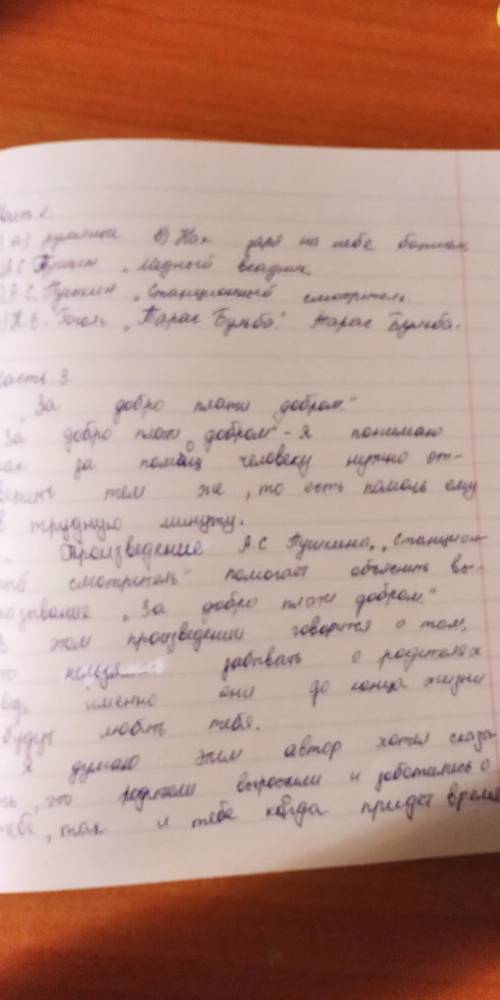 Часть 2.
1) а) румянка б) Как заря на небе
А.С. Пушкин „Медный всадник.
А.С. Пушкин „Станционный смотритель
Н.В. Гоголь „Тарас Бульба." Тарас Бульба.
Часть 3.
„За добро плати добром."
„За добро плати добром" - Я понимаю
как за помощ человеку нужно от-
ветить тем же, то есть помочь ему
в трудную минуту.
Произведение А.С Пушкина „Станцион-
ный смотритель" помогает объяснить вы-
сказывание „За добро плати добром."
В этом произведении говорится о том,
что забывать о родителях
ведь именно они до конца жизни
будут любить тебя.
Я думаю этим автор хотел сказа-
ть, что родители вырастили и заботились о
тебе, так и тебе когда придет время